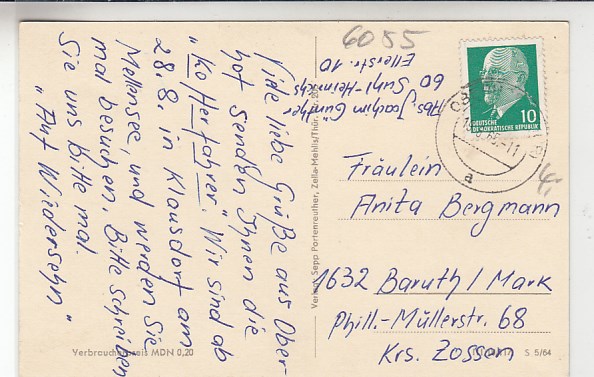 6055
Viele liebe Grüße aus Ober
hof senden Ihnen die
"Kofferfahrer". Wir sind ab
28.8. in Klausdorf am
Mellensee, und werden Sie
mal besuchen. Bitte schreiben
Sie uns bitte mal.
"Auf Wiedersehn"
Abs. Joachim Günther
60 Suhl-Heinrichs
Ellerstr. 10
10
DEUTSCHE
DEMOKRATISCHE REPUBLIK
a
Fräulein
Anita Bergmann
1632 Baruth / Mark
Phill.-Müllerstr. 68
Krs. Zossen
Verlag Sepp Portenreuther, Zella-Mehlis/Thür.
Verbraucherpreis MDN 0,20
S 5/64